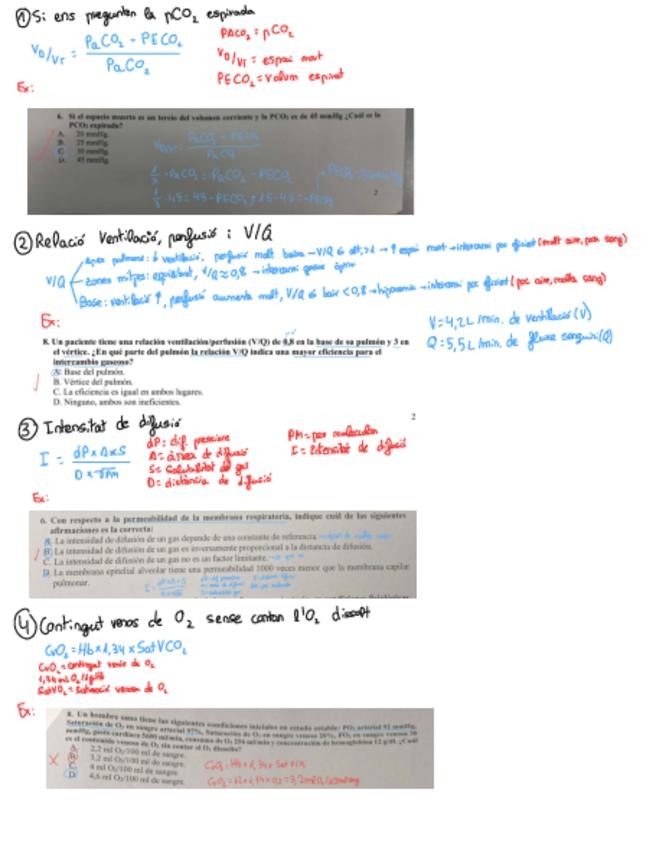 ① Si ens pregunten la pCO₂ espirada
VD/VT = PaCO₂ - PECO₂ / PaCO₂
PACO₂ = pCO₂
VD/VT = espai mort
PECO₂ = volum espirat
Ex:
6. Si el espacio muerto es un tercio del volumen corriente y la PCO₂ es de 45 mmHg ¿Cuál es la
PCO₂ espirada?
A. 20 mmHg.
B. 25 mmHg.
C. 30 mmHg.
D. 45 mmHg.
PaCO₂ - PECO₂
PaCO₂
1/3 · PaCO₂ = PaCO₂ - PECO₂
1/3 · 45 = 45 - PECO₂ ; 15 - 45 = -PECO₂
2
② Relació Ventilació, perfusió : V/Q
V/Q
Apex pulmons: ventilació, perfusió molt baixa - V/Q és alt, >1 → ↑ espai mort → intercanvi poc eficient (molt aire, poca sang)
zones mitges: equilibri, V/Q ≈ 0,8 → intercanvi gasos òptim
Base: ventilació ↑, perfusió augmenta molt, V/Q és baix < 0,8 → hipoxemia → intercanvi poc eficient (poc aire, molta sang)
Ex:
V = 4,2 L/min. de ventilació (V)
Q = 5,5 L/min. de fluxe sanguini (Q)
8. Un paciente tiene una relación ventilación/perfusión (V/Q) de 0,8 en la base de su pulmón y 3 en
el vértice. ¿En qué parte del pulmón la relación V/Q indica una mayor eficiencia para el
intercambio gaseoso?
A. Base del pulmón.
B. Vértice del pulmón.
C. La eficiencia es igual en ambos lugares.
D. Ninguno, ambos son ineficientes.
2
③ Intensitat de difusió
I = dP × A × S / D × √PM
dP: dif. pressions
A = àrea de difusió
S = Solubilitat del gas
D = distància de difusió
PM = pes molecular
I = Intensitat de difusió
Ex:
6. Con respecto a la permeabilidad de la membrana respiratoria, indique cuál de las siguientes
afirmaciones es la correcta:
A. La intensidad de difusión de un gas depende de una constante de referencia.
B. La intensidad de difusión de un gas es inversamente proporcional a la distancia de difusión.
C. La intensidad de difusión de un gas no es un factor limitante.
D. La membrana epitelial alveolar tiene una permeabilidad 1000 veces menor que la membrana capilar
pulmonar.
④ Contingut venos de O₂ sense contar l'O₂ dissolt
CvO₂ = Hb × 1,34 × SatVCO₂
CvO₂ = Contingut venós de O₂
1,34 ml O₂/gHb
SatVO₂ = Saturació venosa de O₂
Ex:
8. Un hombre sano tiene las siguientes condiciones iniciales en estado estable: PO₂ arterial 92 mmHg,
Saturación de O₂ en sangre arterial 97%, Saturación de O₂ en sangre venosa 20%, PO₂ en sangre venosa
mmHg, gasto cardíaco 5600 ml/min, consumo de O₂ 256 ml/min y concentración de hemoglobina 12 g/dl. ¿Cuál
es el contenido venoso de O₂ sin contar el O₂ disuelto?
A. 2,2 ml O₂/100 ml de sangre.
B. 3,2 ml O₂/100 ml de sangre.
C. 4 ml O₂/100 ml de sangre.
D. 4,6 ml O₂/100 ml de sangre.